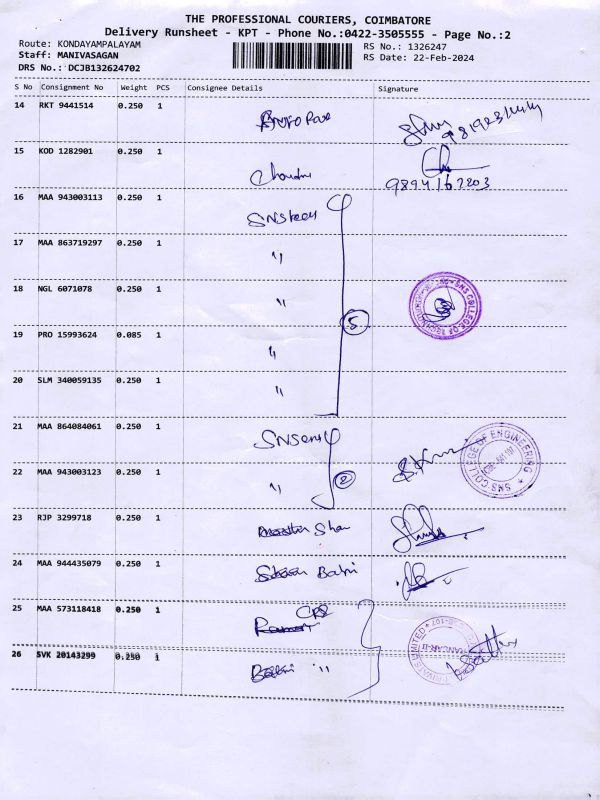 THE PROFESSIONAL COURIERS, COIMBATORE
Delivery Runsheet - KPT - Phone No.:0422-3505555 - Page No.:2
Route: KONDAYAMPALAYAM RS No.: 1326247
Staff: MANIVASAGAN RS Date: 22-Feb-2024
DRS No.: DCJB132624702
S No Consignment No Weight PCS Consignee Details Signature
14 RKT 9441514 0.250 1
15 KOD 1282901 0.250 1
9894162203
16 MAA 943003113 0.250 1
17 MAA 863719297 0.250 1 "
18 NGL 6071078 0.250 1 "
SNS COLLEGE OF
5
19 PRO 15993624 0.085 1 "
20 SLM 340059135 0.250 1 "
21 MAA 864084061 0.250 1
SNS COLLEGE OF ENGINEERING
22 MAA 943003123 0.250 1 " 2
23 RJP 3299718 0.250 1
24 MAA 944435079 0.250 1
25 MAA 573118418 0.250 1
PRIVATE LIMITED
26 SVK 20143299 0.250 1 "